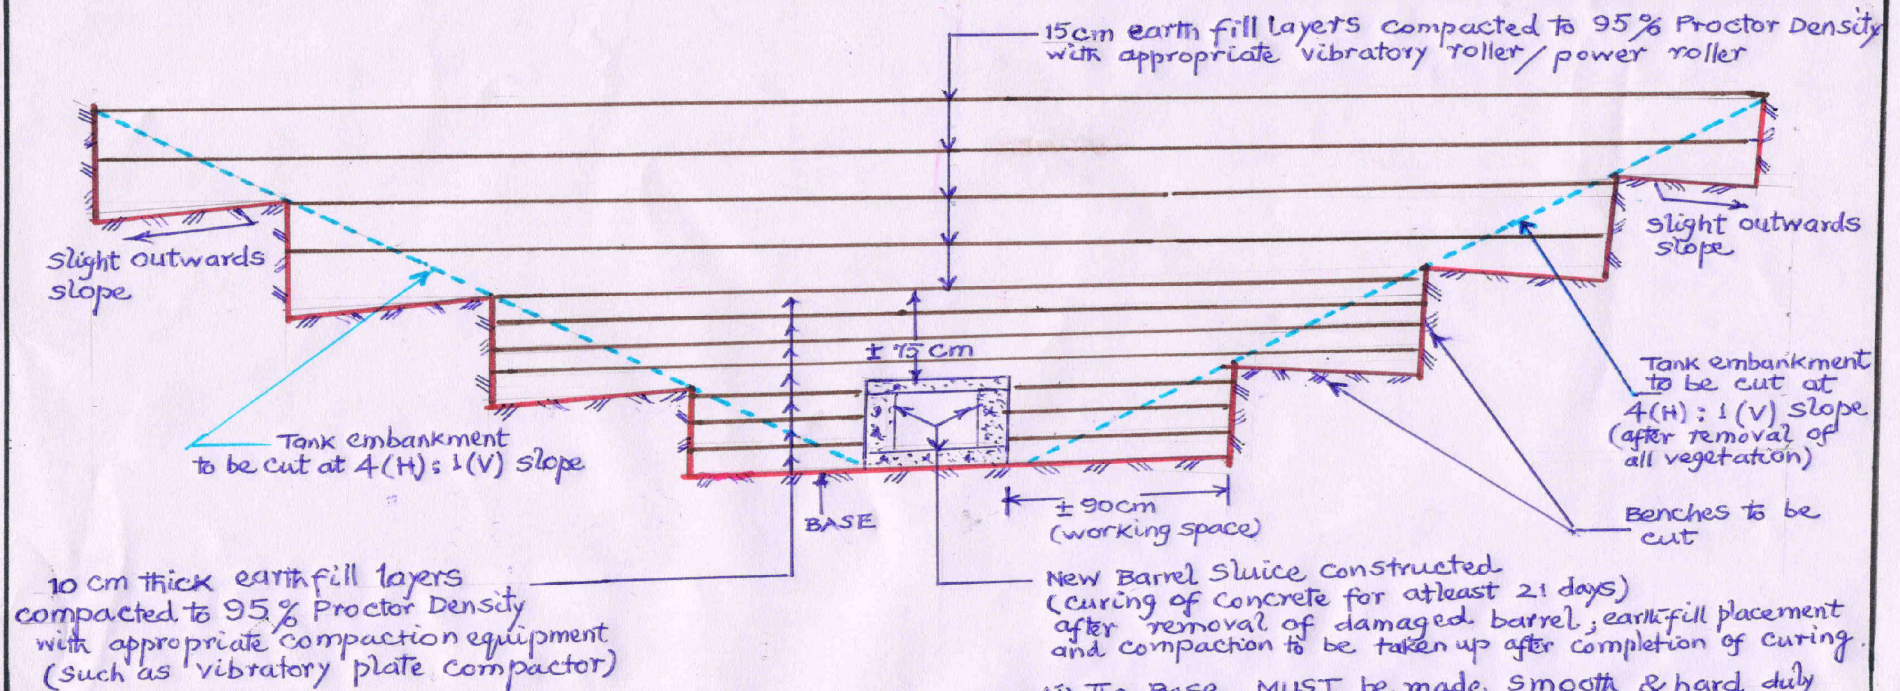 15cm earth fill layers compacted to 95% Proctor Density
with appropriate vibratory roller/power roller
Slight outwards
slope
Slight outwards
slope
± 75 cm
Tank embankment
to be cut at 4(H):1(V) slope
Tank embankment
to be cut at
4(H):1(V) slope
(after removal of
all vegetation)
BASE
± 90cm
(working space)
Benches to be
cut
10 cm thick earthfill layers
compacted to 95% Proctor Density
with appropriate compaction equipment
(such as vibratory plate compactor)
New Barrel Sluice constructed
(curing of concrete for atleast 21 days)
after removal of damaged barrel; earth-fill placement
and compaction to be taken up after completion of curing.
Base MUST be made smooth & hard duly